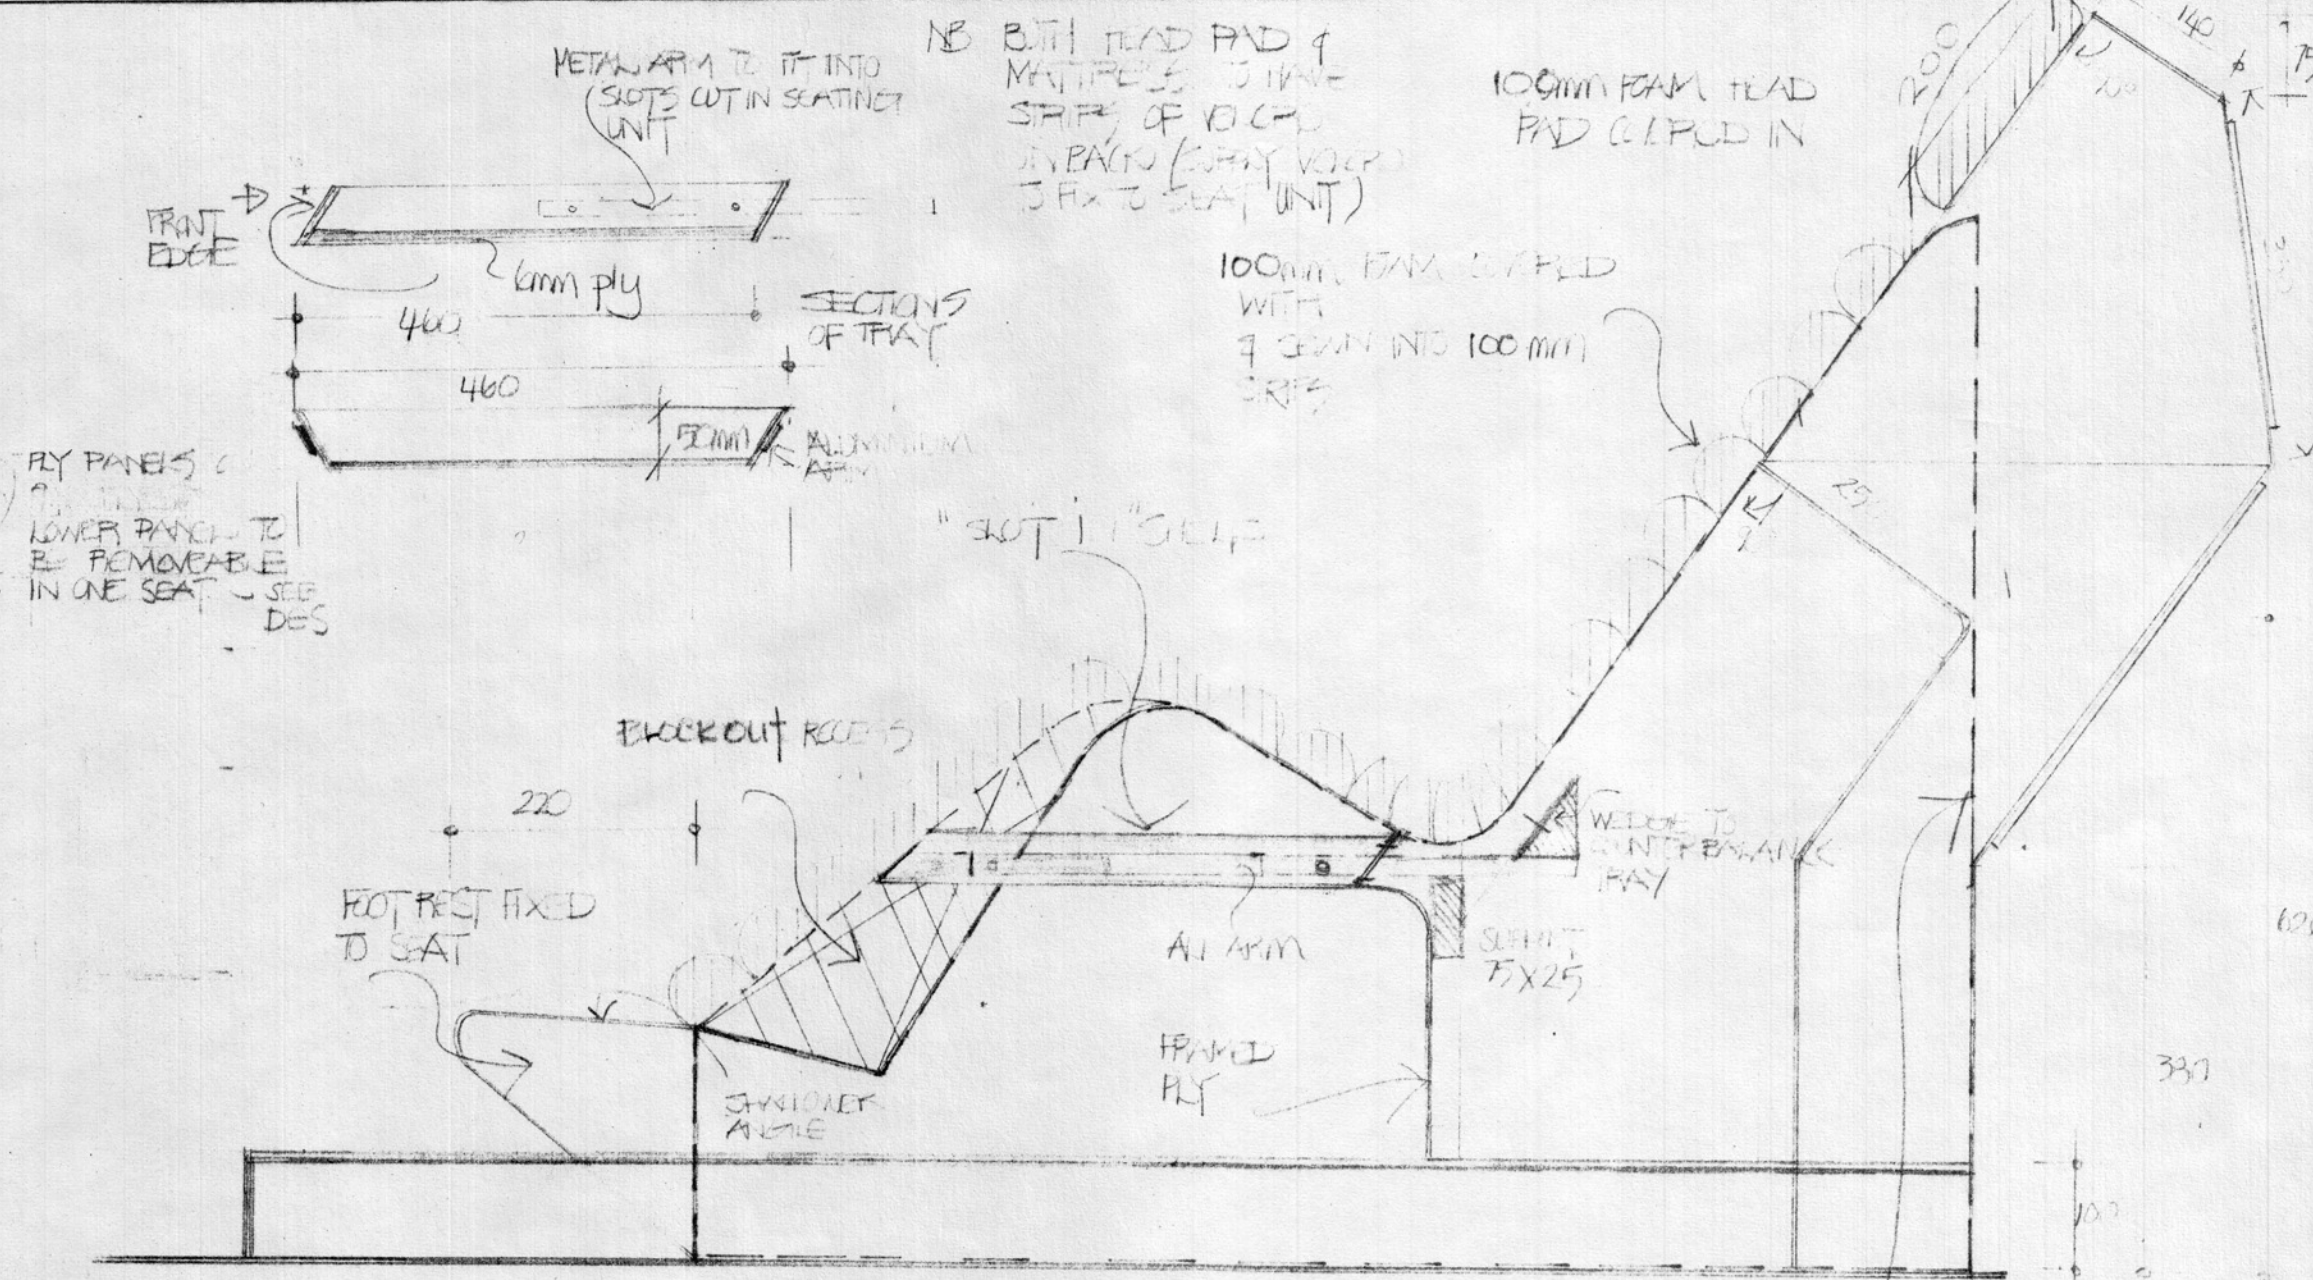 METAL ARM TO FIT INTO
SLOTS CUT IN SEATING
UNIT
NB BOTH HEAD PAD &
MATTRESS TO HAVE
STRIPS OF VELCRO
ON BACKS (SUPPLY VELCRO
TO FIX TO SEAT UNIT)
100mm FOAM HEAD
PAD COVERED IN
200
140
75
FRONT
EDGE
6mm ply
460
SECTIONS
OF TRAY
460
50mm
ALUMINIUM
ARM
100mm FOAM COVERED
WITH
& SEWN INTO 100mm
STRIPS
PLY PANELS
LOWER PANEL TO
BE REMOVEABLE
IN ONE SEAT - SEE
DES
"SLOT IN" SHELF
BLOCKOUT RECESS
220
FOOT REST FIXED
TO SEAT
WEDGE TO
COUNTERBALANCE
TRAY
AL ARM
SUPPORT
75X25
FRAMED
PLY
ANGLE
330
100